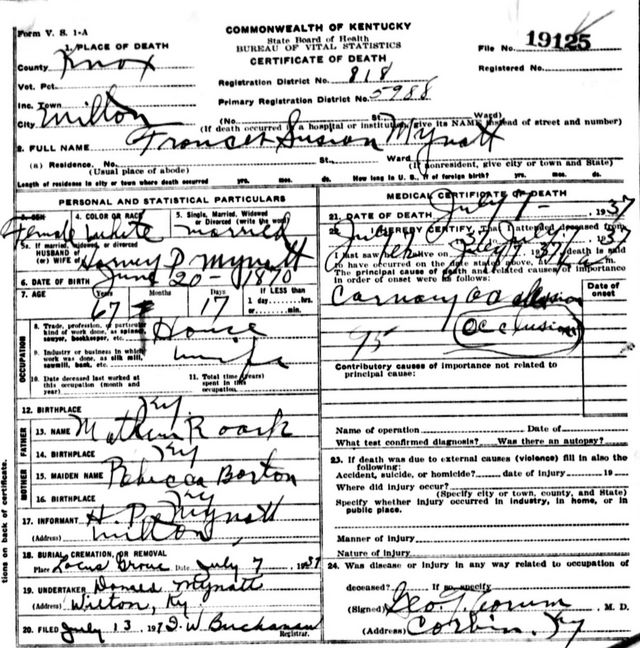 Form V. S. 1-A
COMMONWEALTH OF KENTUCKY
State Board of Health
BUREAU OF VITAL STATISTICS
CERTIFICATE OF DEATH
File No. 19125
Registered No.
1. PLACE OF DEATH
County Knox
Vot. Pct.
Inc. Town
City Wilton
Registration District No. 818
Primary Registration District No. 5988
(No. St. Ward)
(If death occurred in a hospital or institution, give its NAME instead of street and number)
2. FULL NAME Frances Susian Mynatt
(a) Residence. No. St. Ward
(Usual place of abode) (If nonresident, give city or town and State)
Length of residence in city or town where death occurred yrs. mos. ds. How long in U. S., if of foreign birth? yrs. mos. ds.
PERSONAL AND STATISTICAL PARTICULARS
3. SEX 4. COLOR OR RACE 5. Single, Married, Widowed
or Divorced (write the word)
Female White married
5a. If married, widowed, or divorced
HUSBAND of
(or) WIFE of Harvey D Mynatt
6. DATE OF BIRTH June 20 - 1870
7. AGE Years Months Days If LESS than
1 day......hrs.
or......min.
67 17
OCCUPATION
8. Trade, profession, or particular
kind of work done, as spinner,
sawyer, bookkeeper, etc. House
9. Industry or business in which
work was done, as silk mill,
sawmill, bank, etc. wife
10. Date deceased last worked at
this occupation (month and
year)
11. Total time (years)
spent in this
occupation
12. BIRTHPLACE Ky.
FATHER
13. NAME Mathew Roark
14. BIRTHPLACE Ky
MOTHER
15. MAIDEN NAME Rebecca Borton
16. BIRTHPLACE Ky
17. INFORMANT H. D. Mynatt
(Address) Wilton
18. BURIAL, CREMATION, OR REMOVAL
Place Locus Grove Date July 7 1937
19. UNDERTAKER Donald Mynatt
(Address) Wilton, Ky.
20. FILED July 13, 197 W Buchanan
Registrar.
tions on back of certificate.
MEDICAL CERTIFICATE OF DEATH
21. DATE OF DEATH July 7 - 1937
22. I HEREBY CERTIFY, That I attended deceased from
1937
I last saw her alive on death is said
to have occurred on the date stated above, at
The principal cause of death and related causes of importance
in order of onset were as follows:
Date of
onset
occlusion
95
Contributory causes of importance not related to
principal cause:
Name of operation Date of
What test confirmed diagnosis? Was there an autopsy?
23. If death was due to external causes (violence) fill in also the
following:
Accident, suicide, or homicide? date of injury 19
Where did injury occur?
(Specify city or town, county, and State)
Specify whether injury occurred in industry, in home, or in
public place.
Manner of injury
Nature of injury
24. Was disease or injury in any way related to occupation of
deceased? If so, specify
(Signed) Geo. T. Corum M. D.
(Address) Corbin, Ky